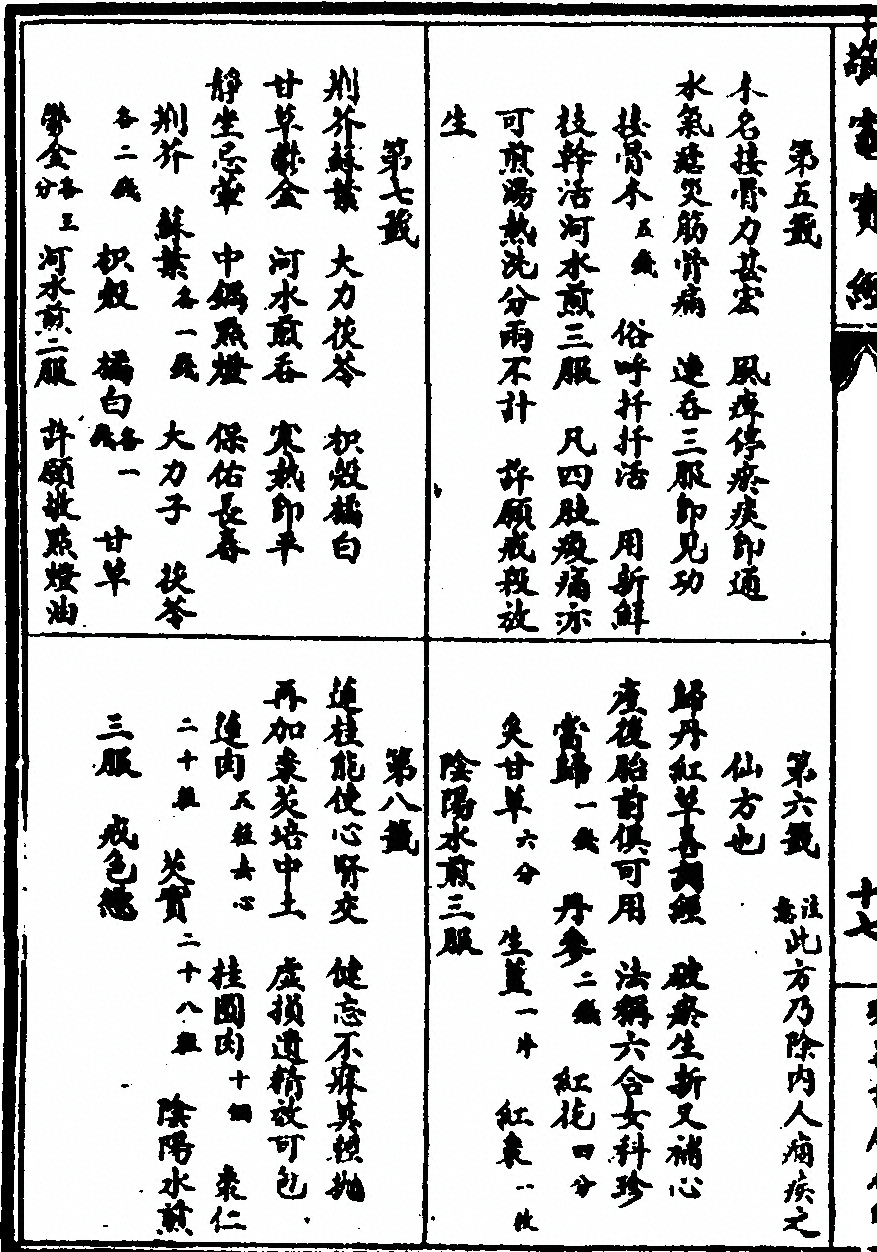 敬竈寶經
十七
第五籤
木名接骨力甚宏　風痺停瘀痰即通
水氣瘧災筋骨病　連吞三服即見功
接骨木五錢　俗呼扦扦活　用新鮮
枝幹活河水煎三服　凡四肢痠痛亦
可煎湯熱洗分兩不計　許願戒殺放
生
第六籤　注意此方乃除內人病疾之
仙方也
歸丹紅草善調經　破瘀生新又補心
產後胎前俱可用　法稱六合女科珍
當歸一錢　丹參二錢　紅花四分
炙甘草六分　生薑一片　紅棗一枚
陰陽水煎三服
第七籤
荆芥蘇葉　大力茯苓　枳殼橘白
甘草鬱金　河水煎吞　寒熱即平
靜坐忌葷　中鍋點燈　保佑長春
荆芥　蘇葉各一錢　大力子　茯苓
各二錢　枳殼　橘白各一錢　甘草
鬱金各三分　河水煎二服　許願敬點燈油
第八籤
蓮桂能使心腎交　健忘不寐其頓拋
再加棗芡培中土　虛損遺精效可包
蓮肉　桂圓肉十個　棗仁
二十粒　芡實二十八粒　陰陽水煎
三服　戒色慾